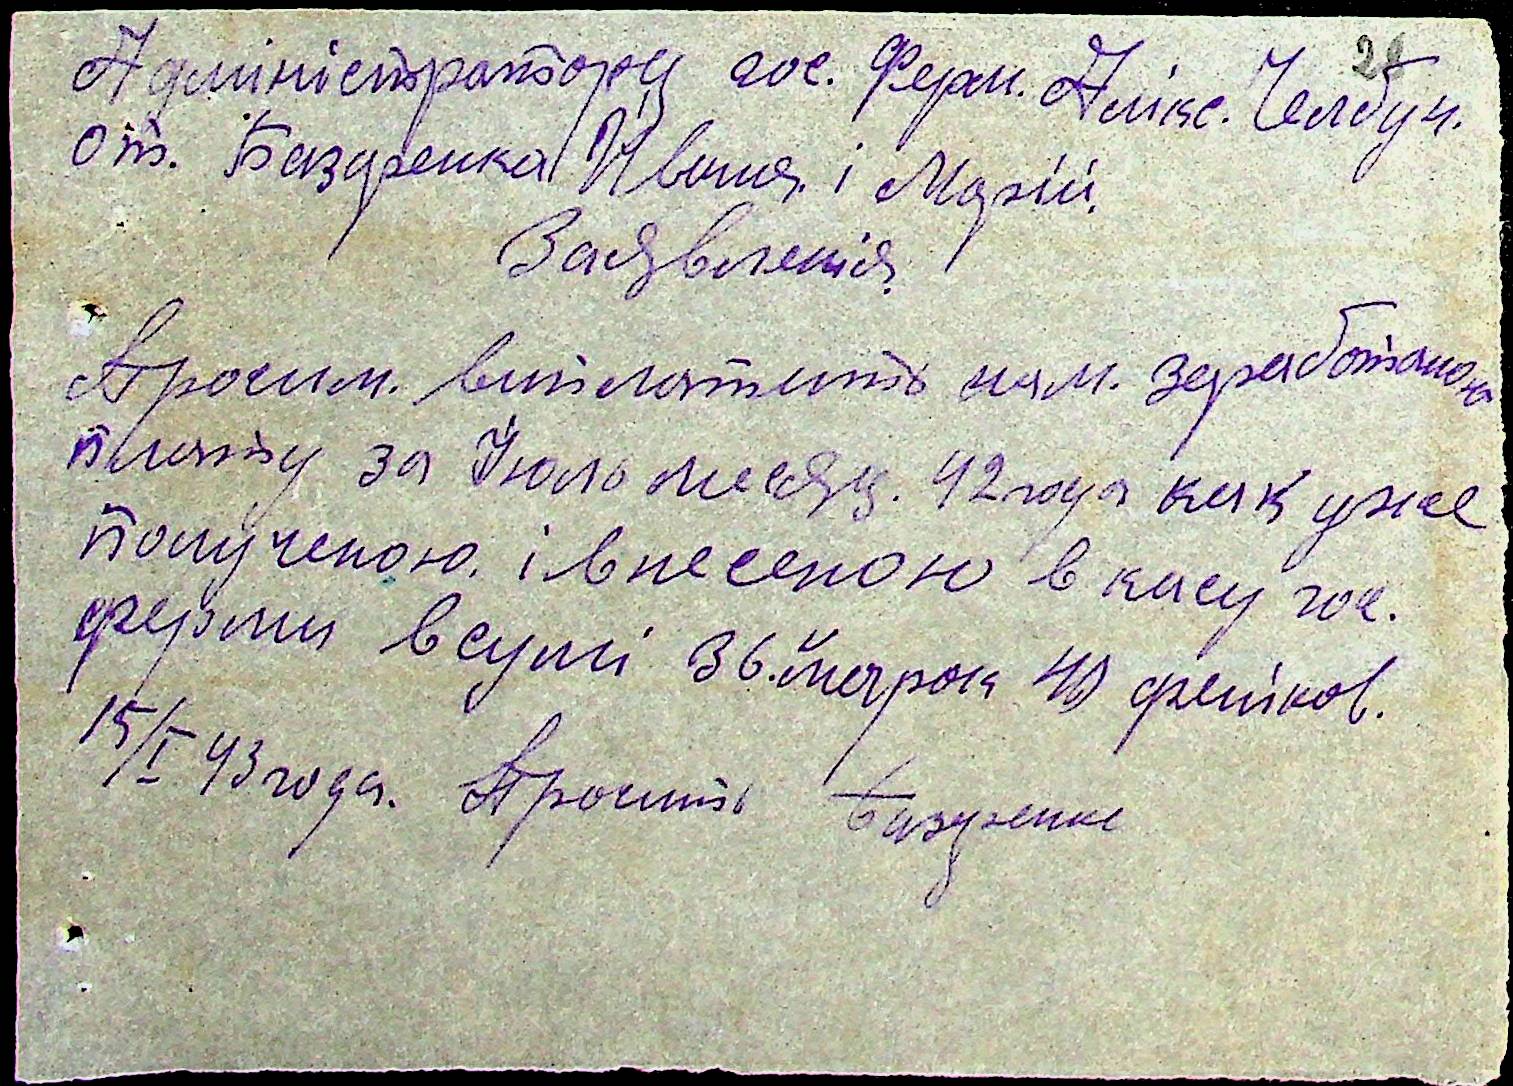 28
Адміністратору гос. Ферм. Алікс. Челбун.
от. Базаренка Ивана. і Марій.
Заявленія.
Просим. виплатить нам. заработаною
плату за Июль месяц. 42 года как уже
полученою. і внесеною в касу гос.
ферми в сумі 36. марок 40 феників.
15/I 43 года. Просить Базаренко